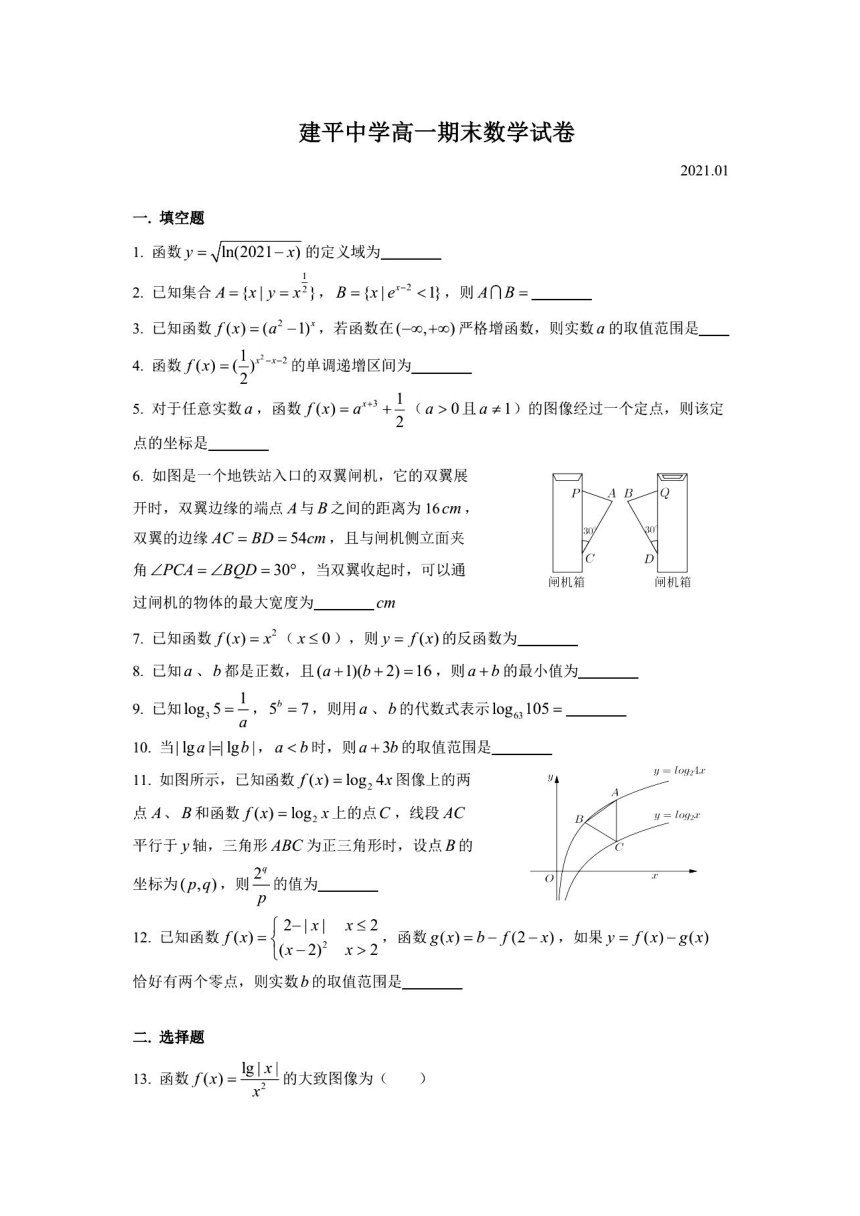 建平中学高一期末数学试卷
2021.01
一. 填空题
1. 函数 y = √ln(2021−x) 的定义域为________
2. 已知集合 A = {x | y = x^{1/2}}，B = {x | e^{x−2} < 1}，则 A∩B = ________
3. 已知函数 f(x) = (a² −1)^x，若函数在 (−∞,+∞) 严格增函数，则实数 a 的取值范围是____
4. 函数 f(x) = (1/2)^{x²−x−2} 的单调递增区间为________
5. 对于任意实数 a，函数 f(x) = a^{x+3} + 1/2（a > 0 且 a ≠ 1）的图像经过一个定点，则该定
点的坐标是________
6. 如图是一个地铁站入口的双翼闸机，它的双翼展
开时，双翼边缘的端点 A 与 B 之间的距离为 16cm，
双翼的边缘 AC = BD = 54cm，且与闸机侧立面夹
角 ∠PCA = ∠BQD = 30°，当双翼收起时，可以通
过闸机的物体的最大宽度为________cm
P A B Q
30° 30°
C D
闸机箱 闸机箱
7. 已知函数 f(x) = x²（x ≤ 0），则 y = f(x) 的反函数为________
8. 已知 a 、b 都是正数，且 (a+1)(b+2) = 16，则 a+b 的最小值为________
9. 已知 log₃ 5 = 1/a，5^b = 7，则用 a 、b 的代数式表示 log₆₃ 105 = ________
10. 当 | lg a |=| lg b |，a < b 时，则 a + 3b 的取值范围是________
11. 如图所示，已知函数 f(x) = log₂ 4x 图像上的两
点 A 、B 和函数 f(x) = log₂ x 上的点 C，线段 AC
平行于 y 轴，三角形 ABC 为正三角形时，设点 B 的
坐标为 (p,q)，则 2^q/p 的值为________
y
y = log₂4x
A
B
y = log₂x
C
O
x
12. 已知函数 f(x) = { 2−| x | x ≤ 2; (x−2)² x > 2，函数 g(x) = b − f(2−x)，如果 y = f(x) − g(x)
恰好有两个零点，则实数 b 的取值范围是________
二. 选择题
13. 函数 f(x) = lg | x | / x² 的大致图像为（  ）